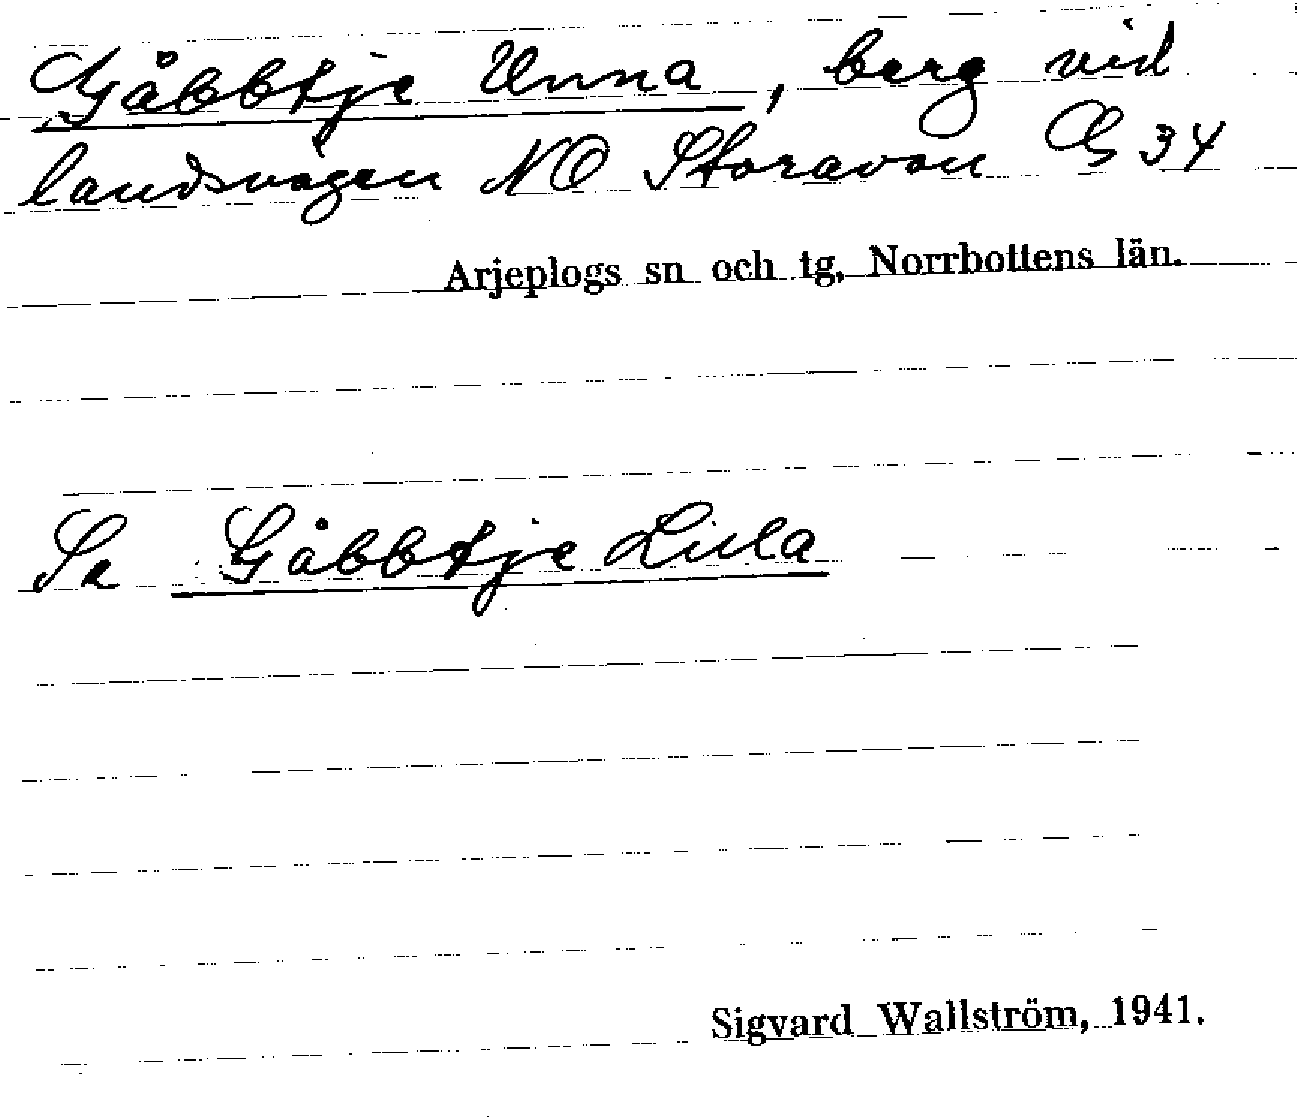 Gåbbtje Unna, berg vid
landsvägen NO Storavan G 34
Arjeplogs sn och tg, Norrbottens län.
Se Gåbbtje Lula
Sigvard Wallström, 1941.